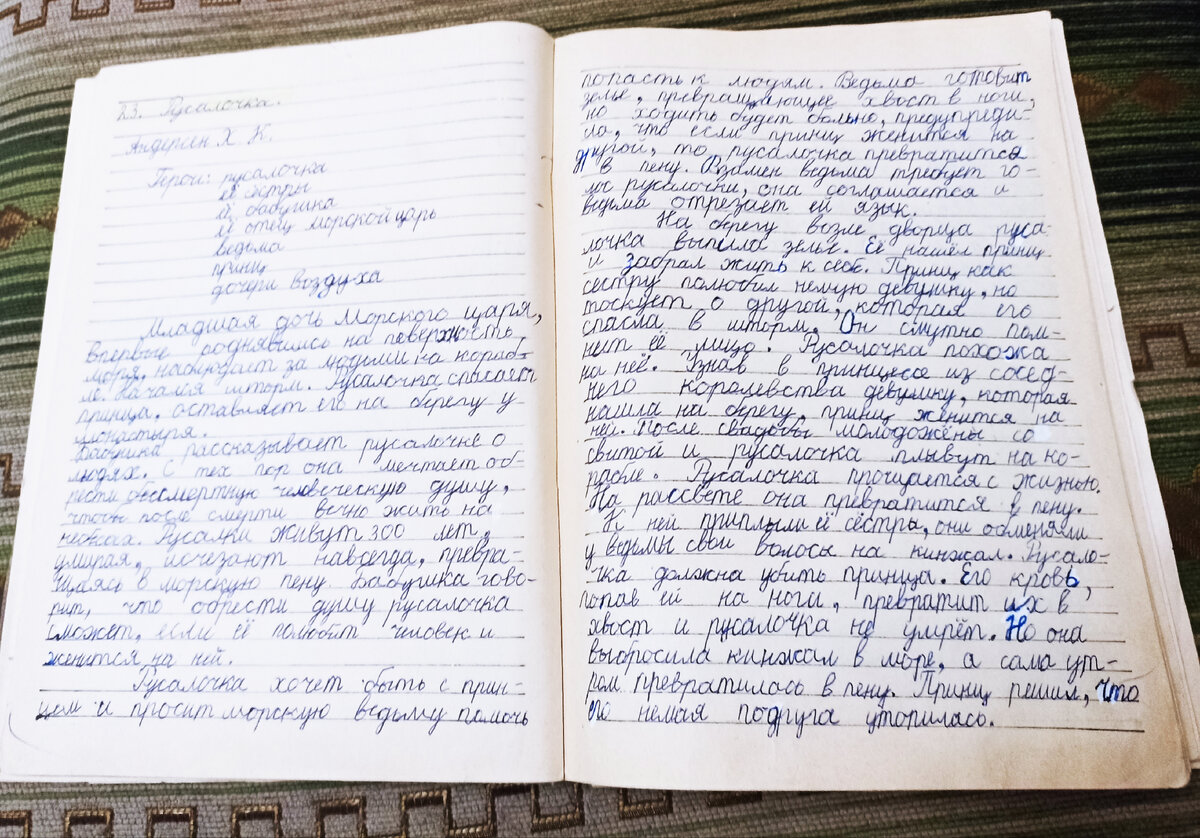 23. Русалочка.
Андерсен Х. К.
Герои: русалочка
её сёстры
её бабушка
её отец морской царь
ведьма
принц
дочери воздуха
Младшая дочь Морского царя,
впервые поднявшись на поверхность
моря, наблюдает за людьми на кораб-
ле. Начался шторм. Русалочка спасает
принца, оставляет его на берегу у
монастыря.
Бабушка рассказывает русалочке о
людях. С тех пор она мечтает об-
рести бессмертную человеческую душу,
чтобы после смерти вечно жить на
небесах. Русалки живут 300 лет,
умирая, исчезают навсегда, превра-
щаясь в морскую пену. Бабушка гово-
рит, что обрести душу русалочка
сможет, если её полюбит человек и
женится на ней.
Русалочка хочет быть с прин-
цем и просит морскую ведьму помочь
попасть к людям. Ведьма готовит
зелье, превращающее хвост в ноги,
но ходить будет больно, предупреди-
ла, что если принц женится на
другой, то русалочка превратится
в пену. Взамен ведьма требует го-
лос русалочки, она соглашается и
ведьма отрезает ей язык.
На берегу возле дворца руса-
лочка выпила зелье. Её нашёл принц
и забрал жить к себе. Принц как
сестру полюбил немую девушку, но
тоскует о другой, которая его
спасла в шторм. Он смутно пом-
нит её лицо. Русалочка похожа
на неё. Узнав в принцессе из сосед-
него королевства девушку, которая
нашла на берегу, принц женится на
ней. После свадьбы молодожёны со
свитой и русалочка плывут на ко-
рабле. Русалочка прощается с жизнью.
На рассвете она превратится в пену.
К ней приплыли её сёстры, они обменяли
у ведьмы свои волосы на кинжал. Русало-
чка должна убить принца. Его кровь,
попав ей на ноги, превратит их в
хвост и русалочка не умрёт. Но она
выбросила кинжал в море, а сама ут-
ром превратилась в пену. Принц решил, что
его немая подруга утопилась.